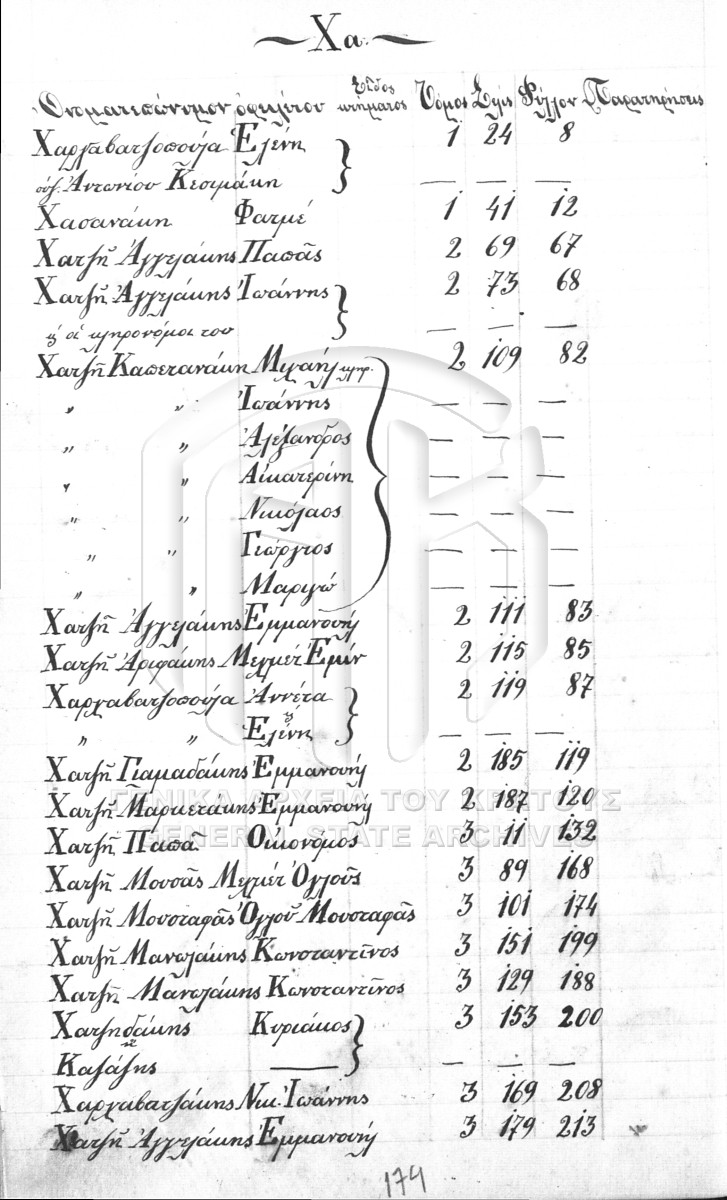 Χα.
Ονοματεπώνυμον οφειλέτου Είδος κτήματος Τόμος Σελίς Φύλλον Παρατηρήσεις
Χαρχαβατζοπούλα Ελένη 1 24 8
συζ. Αντωνίου Κεσιμάκη — — —
Χασανάκη Φατμέ 1 41 12
Χατζή Αγγελάκης Παπᾶς 2 69 67
Χατζή Αγγελάκης Ιωάννης 2 73 68
κ οι κληρονόμοι του — — —
Χατζή Καπετανάκη Μιχαήλ κληρ. 2 109 82
〃 〃 Ιωάννης — — —
〃 〃 Αλέξανδρος — — —
〃 〃 Αικατερίνη — — —
〃 〃 Νικόλαος — — —
〃 〃 Γεώργιος — — —
〃 〃 Μαριγώ — — —
Χατζή Αγγελάκης Εμμανουήλ 2 111 83
Χατζή Αριφάκης Μεχμέτ Εμίν 2 115 85
Χαρχαβατζοπούλα Αννέτα 2 119 87
〃 〃 κ Ελένη — — —
Χατζή Γιαμαδάκης Εμμανουήλ 2 185 119
Χατζή Μαρκετάκης Εμμανουήλ 2 187 120
Χατζή Παπᾶ Οικονόμος 3 11 132
Χατζή Μουσᾶς Μεχμέτ Ογλοῦς 3 89 168
Χατζή Μουσταφᾶς Ογλοῦ Μουσταφᾶς 3 101 174
Χατζή Μανωλάκης Κωνσταντῖνος 3 151 199
Χατζή Μανωλάκης Κωνσταντῖνος 3 129 188
Χατζηδάκης Κυριάκος 3 153 200
Καζάζης — — — —
Χαρχαβατζάκης Νικ. Ιωάννης 3 169 208
Χατζή Αγγελάκης Εμμανουήλ 3 179 213
174
ΓΕΝΙΚΑ ΑΡΧΕΙΑ ΤΟΥ ΚΡΑΤΟΥΣ
GENERAL STATE ARCHIVES